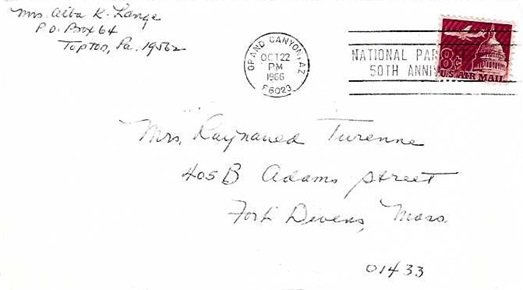 Mrs. Alta K. Lange
P.O. Box 64
Topton, Pa. 19562
GRAND CANYON, AZ
OCT 22
PM
1966
F6023
NATIONAL PAR
50TH ANNIV
8¢
U.S. AIR MAIL
Mrs. Raynaued Turenne
405B Adams Street
Fort Devens, Mass.
01433